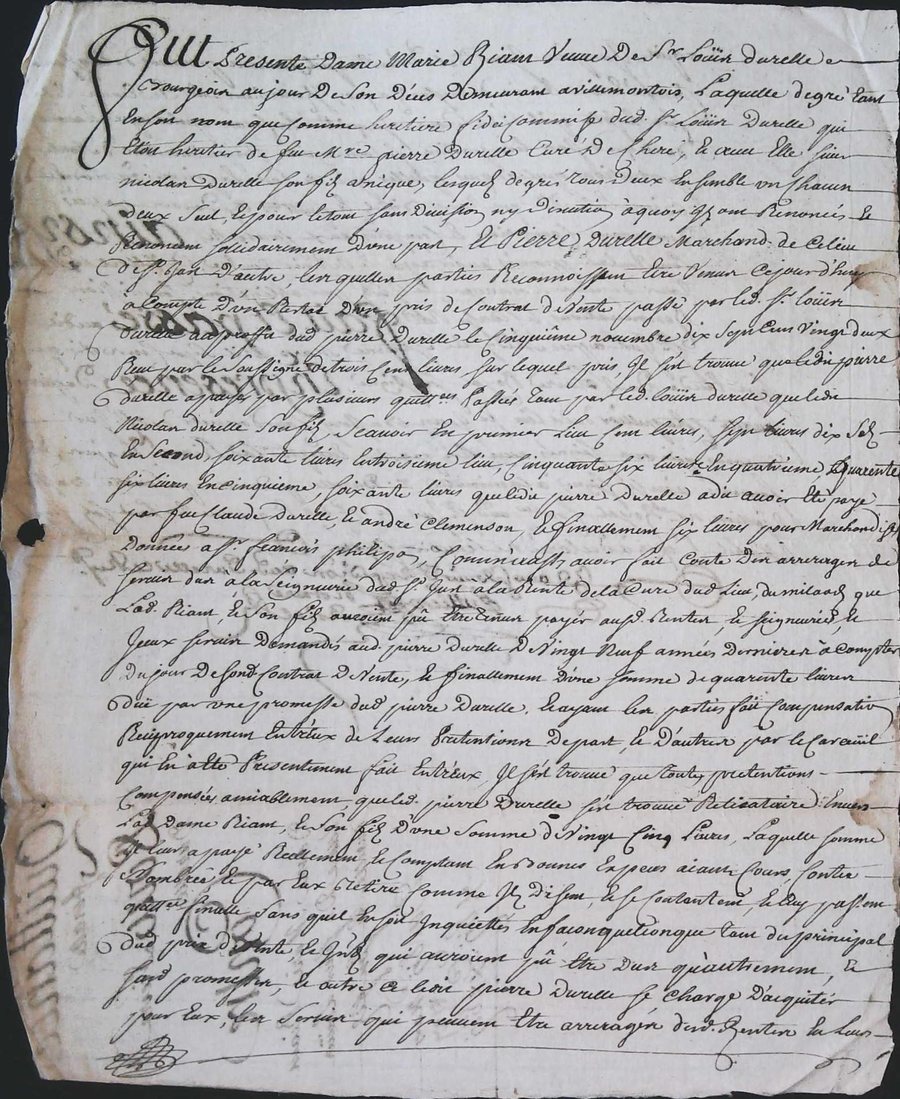 Fut Presente Dame Marie Riam Veuve De Sr Loüis durelle
Bourgeois au jour De Son Déces Demeurant a villemontois, Laquelle de gré tant
En son nom que Comme heritiere fideicommise dud. Sr Loüis Durelle qui
Etoit heritier de feu Mre pierre Durelle Curé De Cheré, et avec Elle sieur
nicolas Durelle son fils unique, lesquels de grés tous deux Ensemble un chacun
deux Seul, et pour le tout sans Division ny Discution, a quoy ils ont Renoncés et
Renoncent sollidairement d'une part, Et Pierre Durelle Marchand de ce lieu
de St. Jan D'autre, lesquelles parties Reconnoissent Etre Venus Ce jour d'huy
à Compte D'un Restat D'un prix de Contrat de Vente passé par led. Sr Loüis
durelle au proffit dud pierre Durelle le Cinquième novembre dix Sept Cens Vingt deux
Reçu par le Soussigné de trois Cens livres sur lequel prix Il s'est trouvé que ledit pierre
durelle a payé par plusieurs quittces Passées tant par led. loüis durelle que led
Nicolas durelle son fils, Scavoir En premier Lieu Cent livres, Sept livres dix Sols
En Second, soixante livres En troisieme lieu, Cinquante six livres En quatrieme quarente
six livres En cinquieme, soixante livres que ledit pierre Durelle a dit avoir Eté payé
par feu Claude Durelle, et andré Clemenson, et finallement six livres pour Marchandises
Données a Sr francois philippon, Comme aussy avoir fait Conte des arrerages de
servis dus à la Seigneurie dud St. Jan a la Rente de la Cure dud Lieu, que
Lad. Riam, et Son fils auroient pû Etre tenus payer ausd. Rentes, et Seigneuries, et
Jceux servis Demandés aud. pierre durelle De Vingt Neuf années Dernieres a compter
Du jour De sond Contrat De Vente, et finallement d'une somme de quarente livres
düe par une promesse dud. pierre durelle, et ayant les parties fait Compensation
Reciproquement Entr'eux de Leurs Pretentions De part, et D'autres par le Carcüil
qui En a Eté Presentement fait Entr'eux, Il s'est trouvé que toutes pretentions
Compensées amiablement, que led. pierre Durelle s'est trouvé Relicataire Envers
Lad. Dame Riam, et Son fils D'une Somme de Vingt Cinq Livres, Laquelle somme
Il leurs a payé Reellement, et Comptant En Bonnes Especes aiant Cours Contée
Nombrée, et par Eux Retirée Comme Ils Disent, et se Contentent, et luy passent
quittce finalle Sans quil En soit Inquiettés En facon quelconque tant du principal
Dud prix de Vente, et Jnts, qui auroient pû Etre Dus qu'autrement, et
sond promesse, et outre ce ledit pierre Durelle se Charge D'aquiter
pour Eux, les Servis qui peuvent Etre arreragés desd. Rentes En Leurs